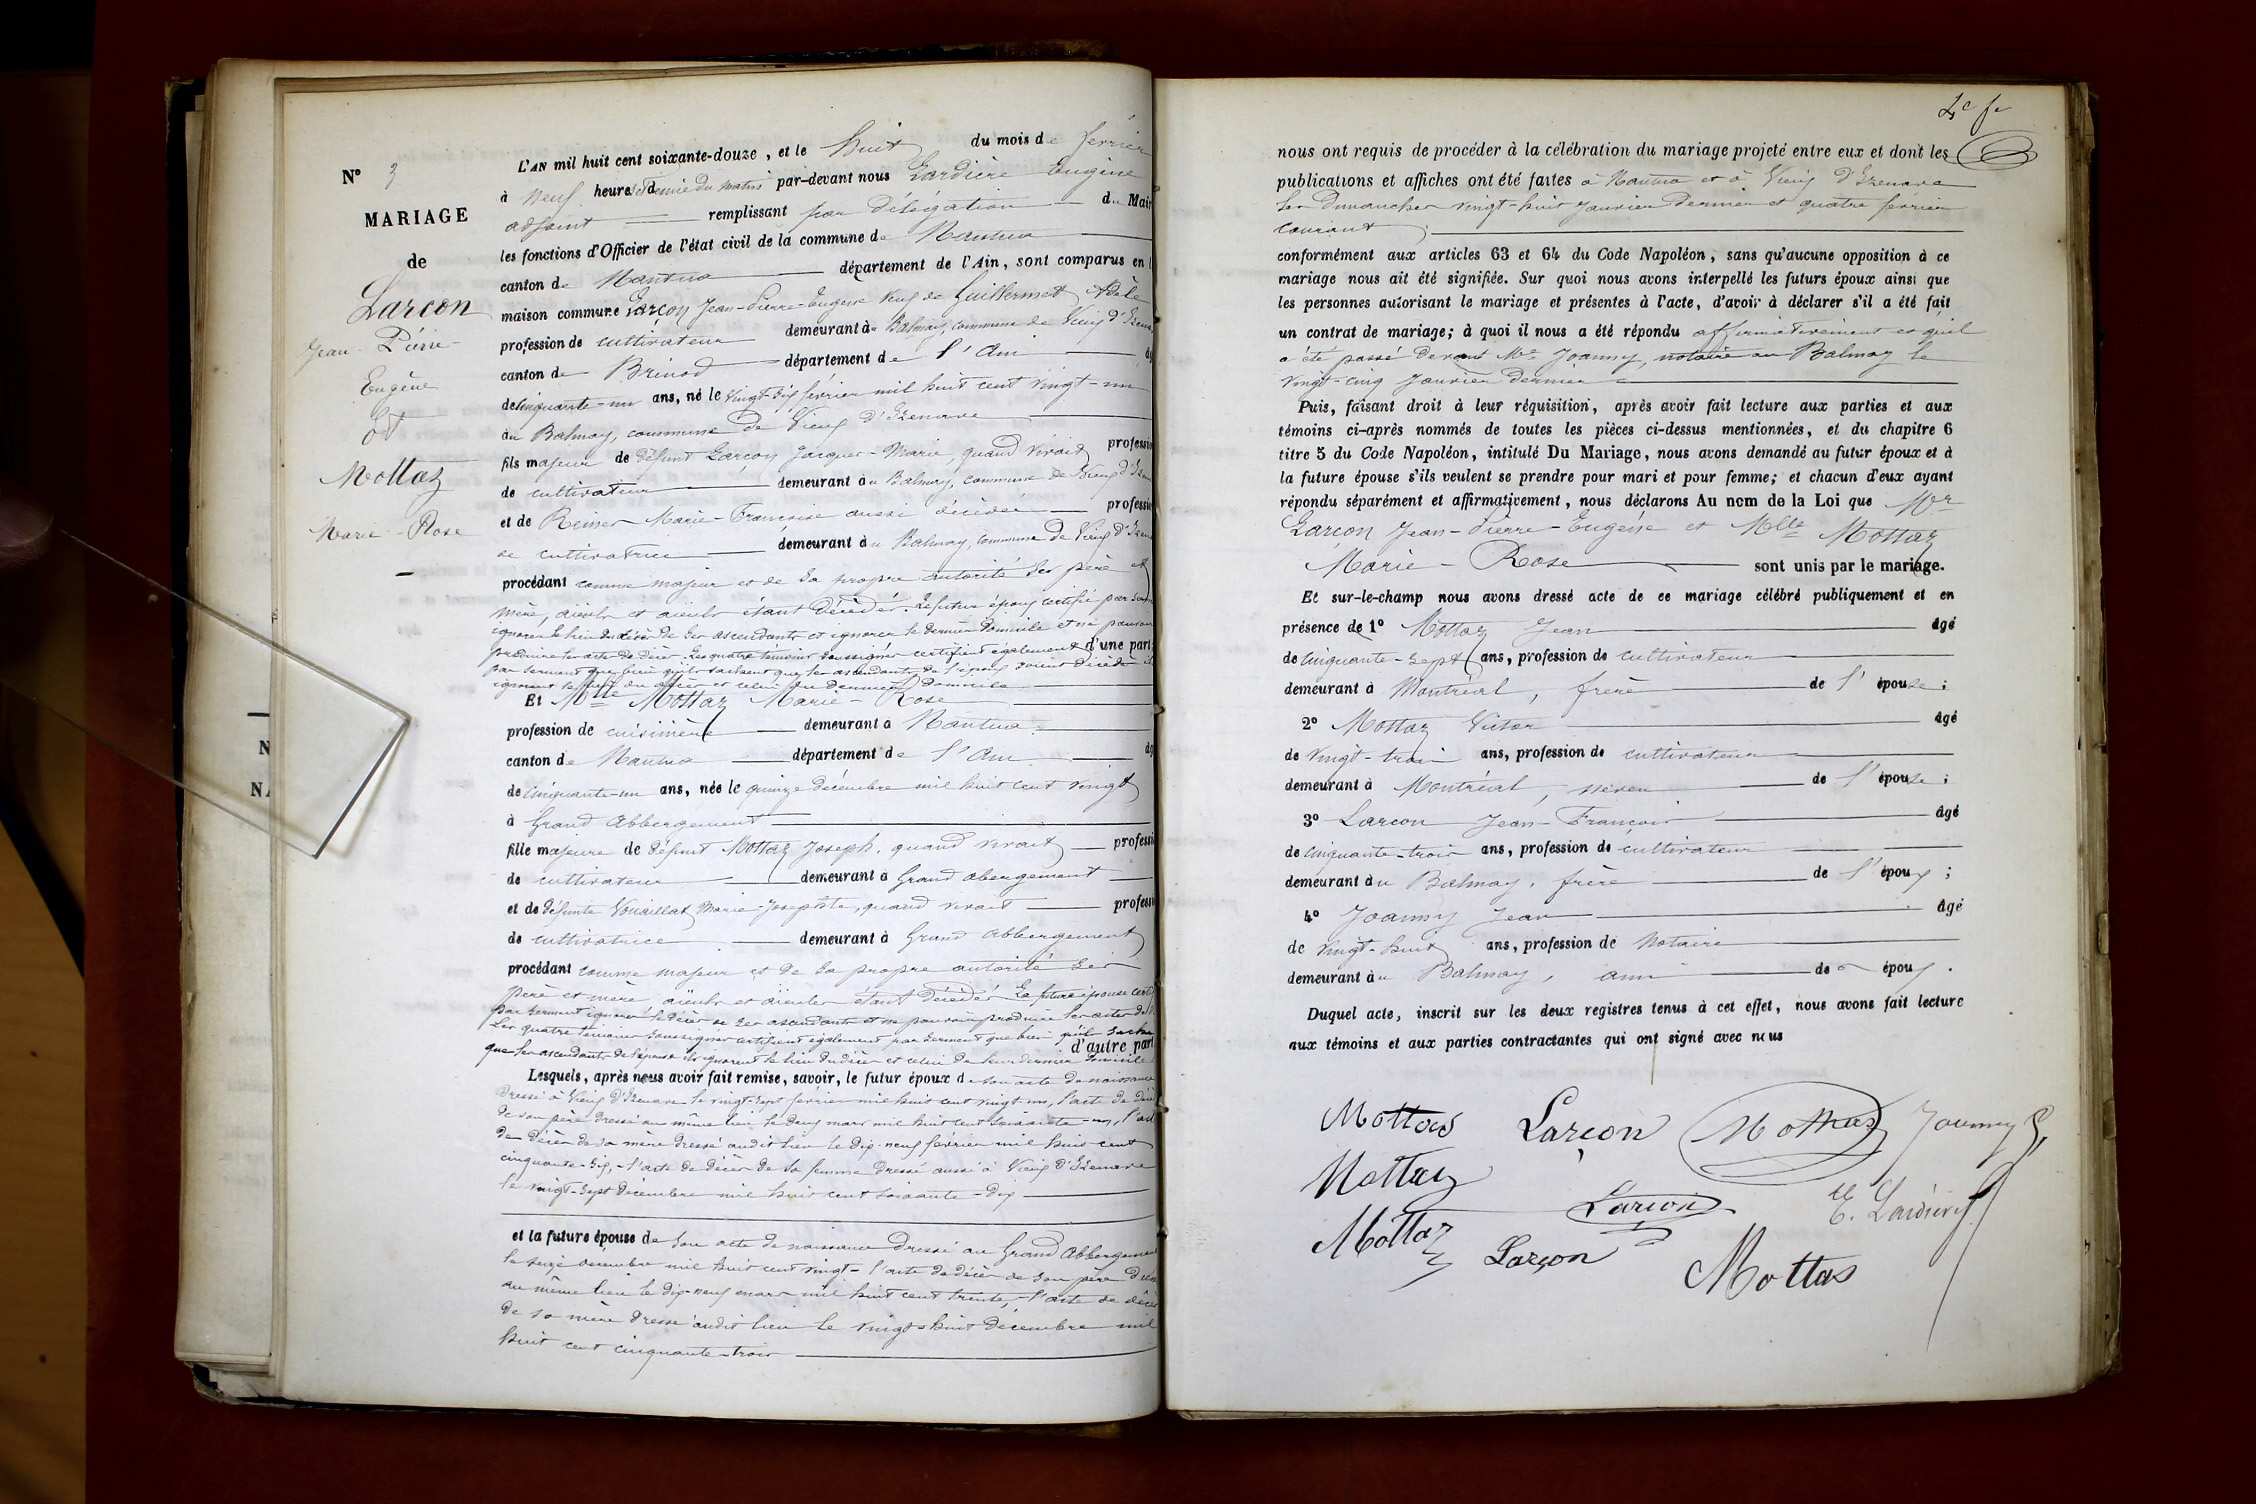 N° 3
MARIAGE
de
Larçon
Jean-Pierre-
Eugène
Et
Mottaz
Marie-Rose
L'AN mil huit cent soixante-douze, et le huit du mois de février
à neuf heures et demie du matin par-devant nous Lardière Eugène
adjoint remplissant par délégation du Mair
les fonctions d'Officier de l'état civil de la commune de Nantua
canton de Nantua département de l'Ain, sont comparus en l
maison commune Larçon Jean-Pierre-Eugène veuf de Guillermet Adèle
profession de cultivateur demeurant au Balmay, commune de Vieux d'Izenave
canton de Brénod département de l'Ain
de cinquante-un ans, né le vingt-six février mil huit cent vingt-un
au Balmay, commune de Vieux d'Izenave
fils majeur de défunt Larçon Jacques-Marie, quand vivait professi
de cultivateur demeurant au Balmay, commune de Vieux d'Izen
et de Marie-Françoise aussi décédée professi
de cultivatrice demeurant au Balmay, commune de Vieux d'Izen
procédant comme majeur et de sa propre autorité ses père et
mère, aïeuls et aïeules étant décédés. Le futur époux certifie par serment
ignorer le lieu du décès de ses ascendants et ignorer le dernier domicile et ne pouvoir
produire les actes de décès. Les quatre témoins soussignés certifient également d'une part
par serment que bien qu'ils sachent que les ascendants de l'époux soient décédés ils
ignorent le lieu du décès et celui du dernier domicile
Et Mlle Mottaz Marie-Rose
profession de cuisinière demeurant à Nantua
canton de Nantua département de l'Ain
de cinquante-un ans, née le quinze décembre mil huit cent vingt
à Grand Abbergement
fille majeure de défunt Mottaz Joseph, quand vivait professi
de cultivateur demeurant à Grand Abergement
et de défunte Vuaillat Marie-Josephte, quand vivait professi
de cultivatrice demeurant à Grand Abbergement
procédant comme majeur et de sa propre autorité ses
père et mère, aïeuls et aïeules étant décédés La future épouse certifie
par serment ignorer le décès de ses ascendants et ne pouvoir produire les actes de
Les quatre témoins soussignés certifient également par serment que bien qu'ils sachent
que les ascendants de l'épouse ils ignorent le lieu du décès et celui de leur dernier domicile d'autre part
Lesquels, après nous avoir fait remise, savoir, le futur époux de son acte de naissance
dressé à Vieux d'Izenave le vingt-sept février mil huit cent vingt-un, l'acte de décès
de son père dressé au même lieu le deux mars mil huit cent soixante-un, l'acte
de décès de sa mère dressé audit lieu le dix-neuf février mil huit cent
cinquante-six, l'acte de décès de sa femme dressé aussi à Vieux d'Izenave
le vingt-sept décembre mil huit cent soixante-dix
et la future épouse de son acte de naissance dressé au Grand Abbergement
le seize décembre mil huit cent vingt - l'acte de décès de son père dressé
au même lieu le dix-neuf mars mil huit cent trente, - l'acte de décès
de sa mère dressé audit lieu le vingt-huit décembre mil
huit cent cinquante-trois
nous ont requis de procéder à la célébration du mariage projeté entre eux et dont les
publications et affiches ont été faites à Nantua et à Vieux d'Izenave
les dimanches vingt-huit janvier dernier et quatre février
courant
conformément aux articles 63 et 64 du Code Napoléon, sans qu'aucune opposition à ce
mariage nous ait été signifiée. Sur quoi nous avons interpellé les futurs époux ainsi que
les personnes autorisant le mariage et présentes à l'acte, d'avoir à déclarer s'il a été fait
un contrat de mariage; à quoi il nous a été répondu affirmativement et qu'il
a été passé devant Me Joanny, notaire au Balmay le
vingt-cinq janvier dernier
Puis, faisant droit à leur réquisition, après avoir fait lecture aux parties et aux
témoins ci-après nommés de toutes les pièces ci-dessus mentionnées, et du chapitre 6
titre 5 du Code Napoléon, intitulé Du Mariage, nous avons demandé au futur époux et à
la future épouse s'ils veulent se prendre pour mari et pour femme; et chacun d'eux ayant
répondu séparément et affirmativement, nous déclarons Au nom de la Loi que Mr
Larçon Jean-Pierre-Eugène et Mlle Mottaz
Marie-Rose sont unis par le mariage.
Et sur-le-champ nous avons dressé acte de ce mariage célébré publiquement et en
présence de 1° Mottaz Jean âgé
de cinquante-sept ans, profession de cultivateur
demeurant à Montréal, frère de l'épouse;
2° Mottaz Victor âgé
de vingt-trois ans, profession de cultivateur
demeurant à Montréal, neveu de l'épouse;
3° Larçon Jean-François âgé
de cinquante-trois ans, profession de cultivateur
demeurant au Balmay, frère de l'époux;
4° Joanny Jean âgé
de vingt-huit ans, profession de Notaire
demeurant au Balmay, ami de époux.
Duquel acte, inscrit sur les deux registres tenus à cet effet, nous avons fait lecture
aux témoins et aux parties contractantes qui ont signé avec nous
Mottas Larçon Mottaz Joanny
Mottaz Larçon E. Lardière
Mottaz Larçon Mottas